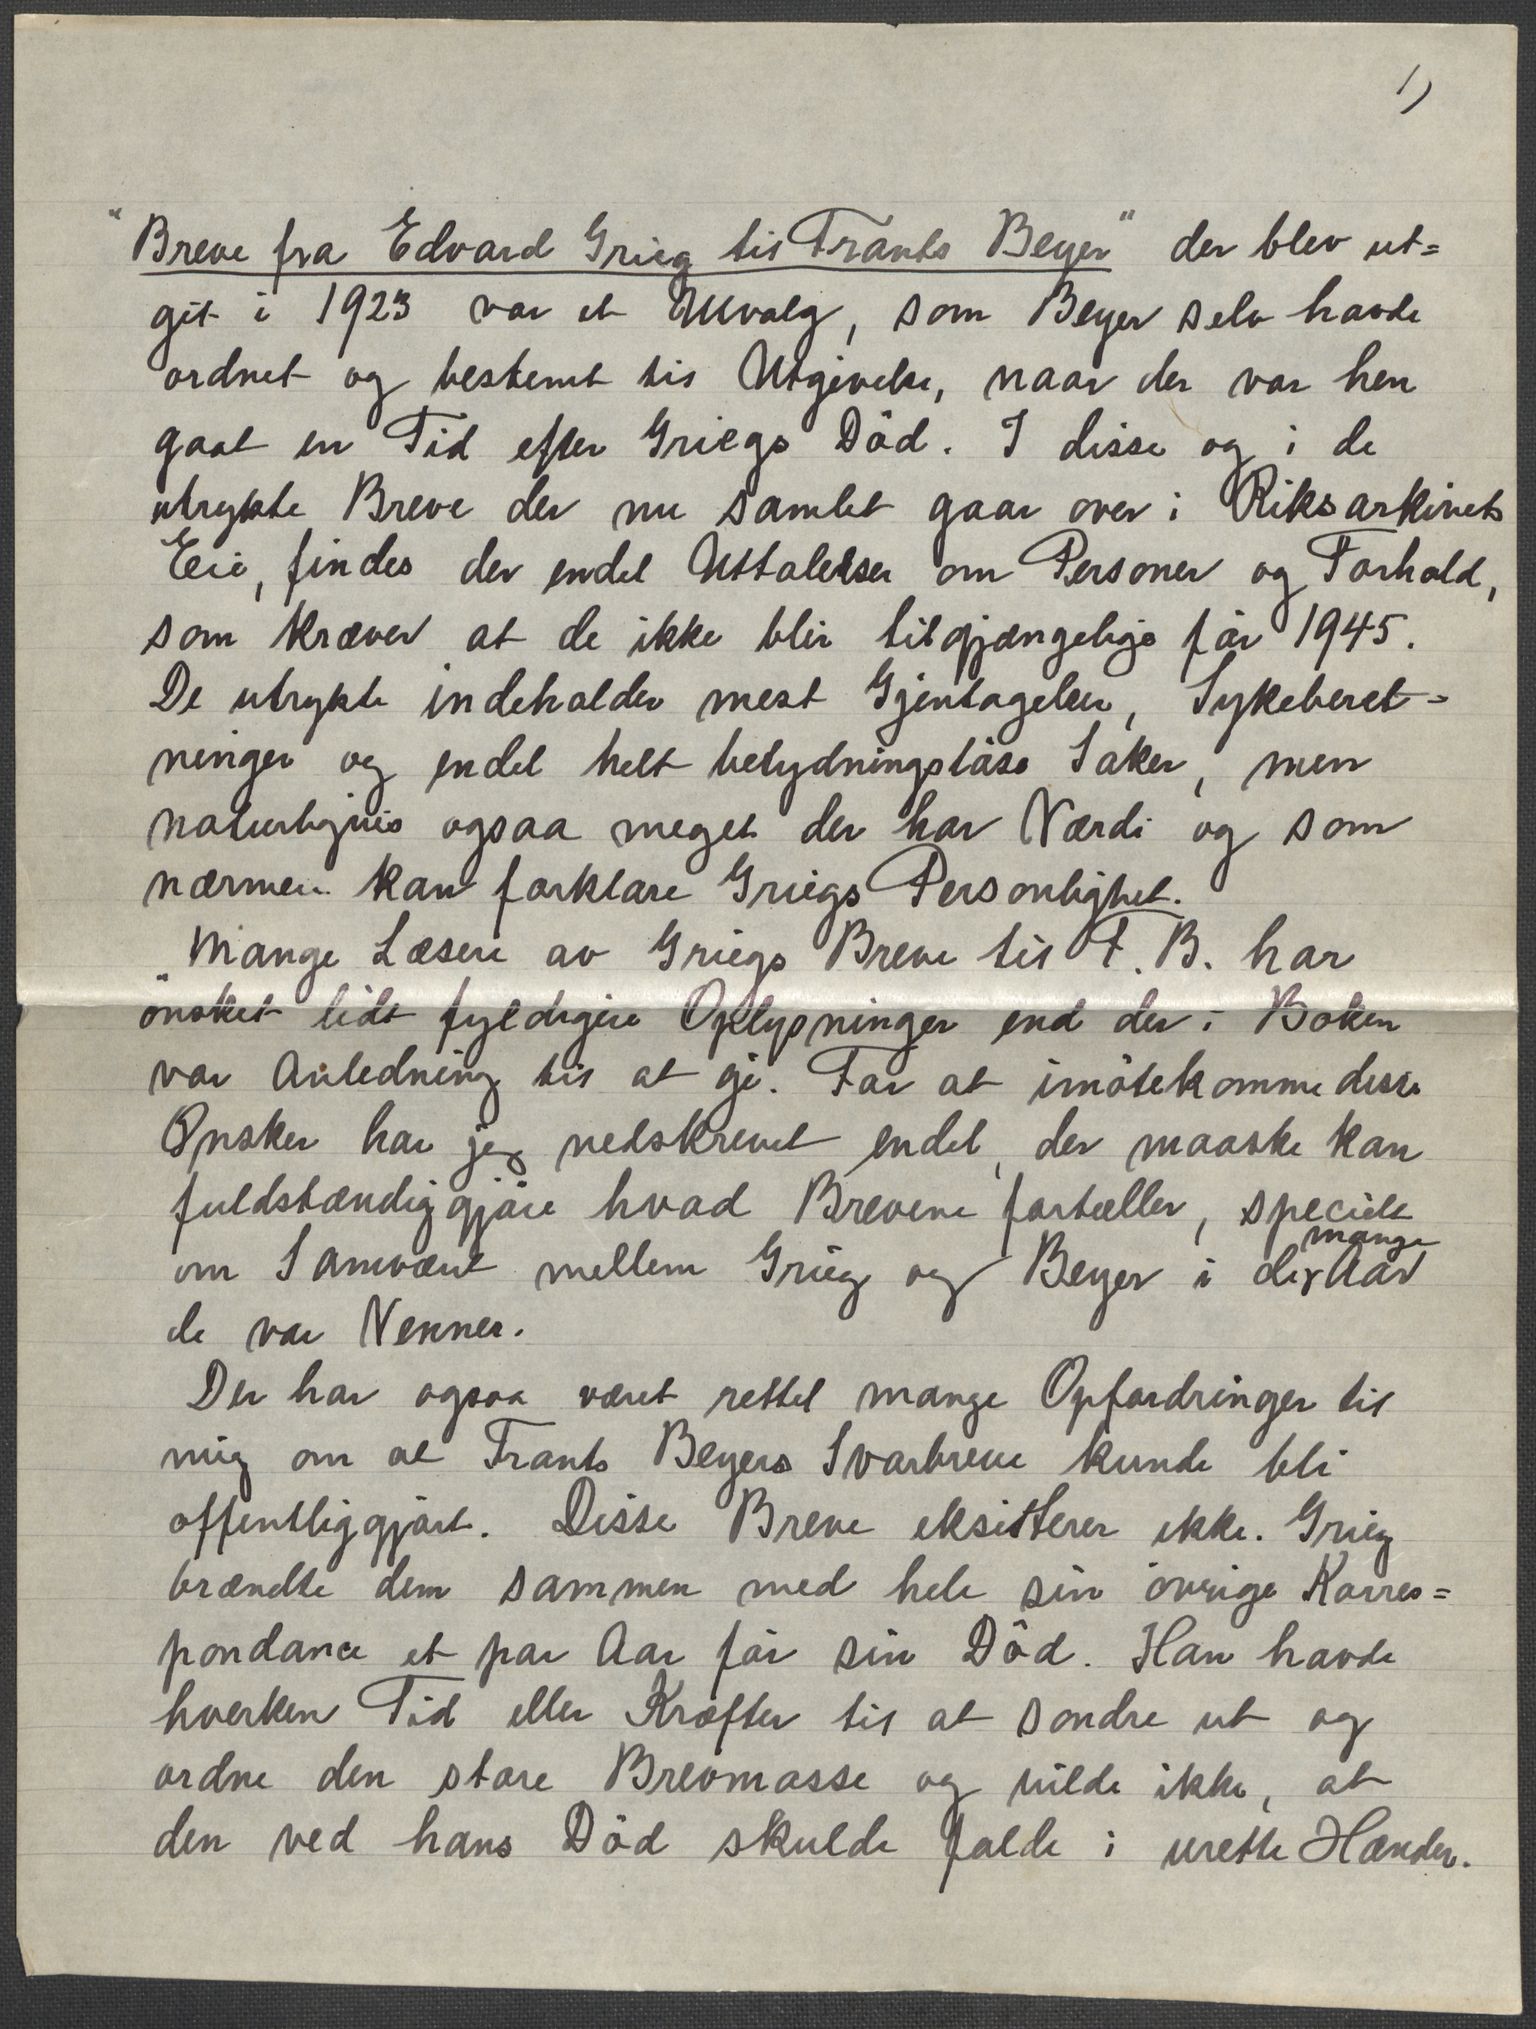 1)
"Breve fra Edvard Grieg til Frants Beyer" der blev ut=
git i 1923 var et Utvalg, som Beyer selv havde
ordnet og bestemt til Utgivelse, naar der var hen
gaat en Tid efter Griegs Död. I disse og i de
utrykte Breve der nu samlet gaar over i Riksarkivets
Eie, findes der endel Uttalelser om Personer og Forhold,
som kræver at de ikke blir tilgjængelige för 1945.
De utrykte indeholder mest Gjentagelser, Sykeberet=
ninger og endel helt betydningslöse Saker, men
naturligvis ogsaa meget der har Værdi og som
nærmere kan forklare Griegs Personlighet.
Mange Læsere av Griegs Breve til F. B. har
önsket lidt fyldigere Oplysninger end der i Boken
var Anledning til at gi. For at imötekomme disse
Önsker har jeg nedskrevet endel, der maaske kan
fuldstændiggjöre hvad Brevene fortæller, specielt
om Samværet mellem Grieg og Beyer i de mange Aar
de var Venner.
Der har ogsaa været rettet mange Opfordringer til
mig om at Frants Beyers Svarbreve kunde bli
offentliggjort. Disse Breve eksisterer ikke. Grieg
brændte dem sammen med hele sin övrige Korres=
pondance et par Aar för sin Död. Han havde
hverken Tid eller Kræfter til at sondre ut og
ordne den store Brevmasse og vilde ikke, at
den ved hans Död skulde falde i urette Hænder.